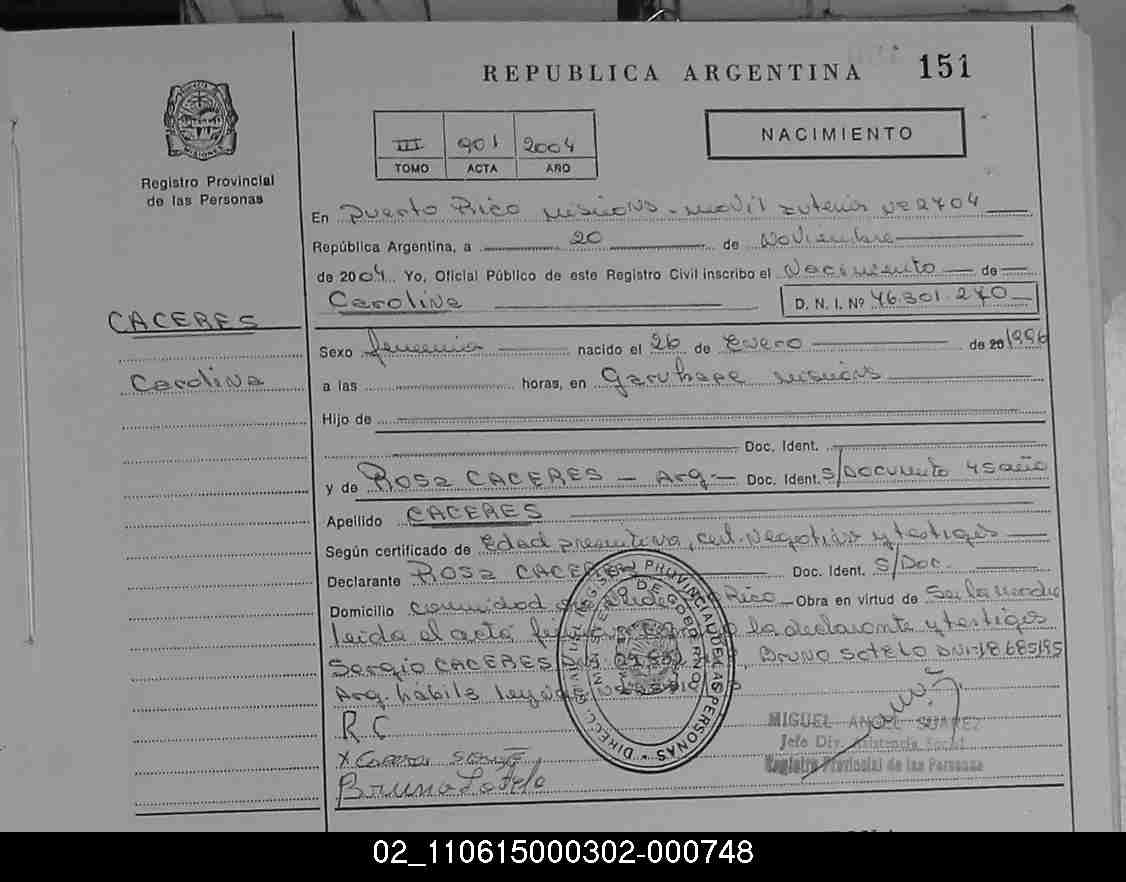 REPUBLICA ARGENTINA 151
III 901 2004
TOMO ACTA AÑO
NACIMIENTO
MISIONES
Registro Provincial
de las Personas
En Puerto Rico Misiones - Movil
República Argentina, a 20 de Noviembre
de 2004. Yo, Oficial Público de este Registro Civil inscribo el Nacimiento de
Carolina D. N. I. Nº 46.301.270
CACERES
Carolina
Sexo femenino nacido el 26 de Enero de 20 1996
a las horas, en Garuhape Misiones
Hijo de
Doc. Ident.
y de Rosa CACERES - Arg - Doc. Ident. S/Documento 45 año
Apellido CACERES
Según certificado de Edad presuntiva, cert. negativo y testigos
Declarante ROSa CACERES Doc. Ident. S/Doc.
Domicilio comunidad Rico Obra en virtud de Ser la Madre
leida el acta la declarante y testigos
Sergio CACERES , BRUNO SOTELO DNI-18.685195
Arg. hábils
R C
x
Bruno Sotelo
DIREC. GRAL. DEL REGISTRO PROVINCIAL DE LAS PERSONAS
MINISTERIO DE GOBIERNO
MISIONES
MIGUEL ANGEL SUAREZ
Jefe Div. Asistencia Social
Registro Provincial de las Personas
02_110615000302-000748